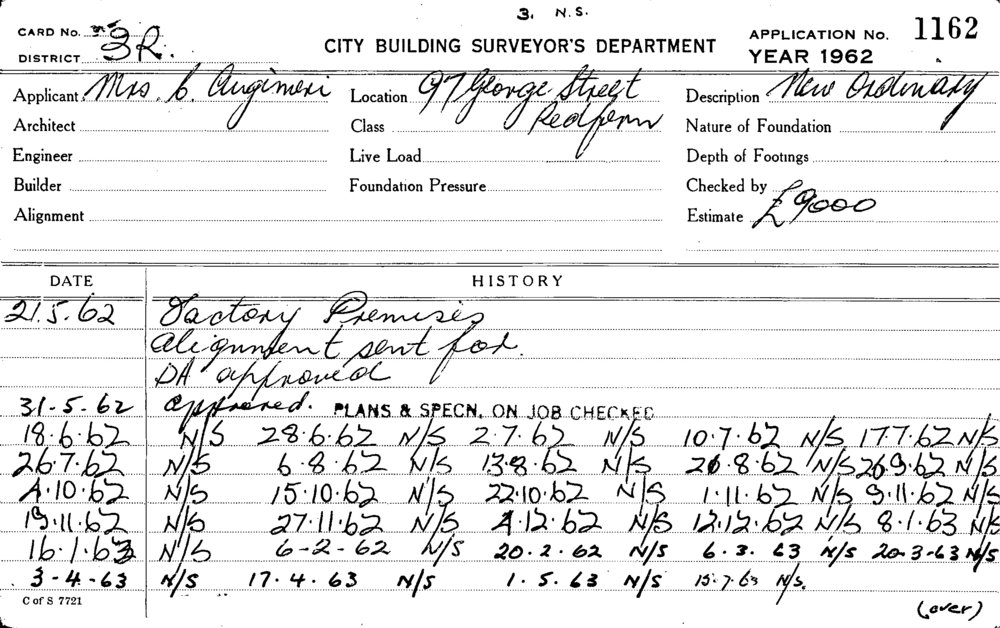 3. N.S.
CARD No. 3R.
DISTRICT
CITY BUILDING SURVEYOR'S DEPARTMENT
APPLICATION No. 1162
YEAR 1962
Applicant Mrs. C. Augimeri Location 97 George Street Description New Ordinary
Architect Class Redfern Nature of Foundation
Engineer Live Load Depth of Footings
Builder Foundation Pressure Checked by
Alignment Estimate £9000
DATE HISTORY
21.5.62 Factory Premises
Alignment sent for.
DA approved
31-5-62 approved. PLANS & SPECN. ON JOB CHECKED
18.6.62 N/S 28.6.62 N/S 2.7.62 N/S 10.7.62 N/S 17.7.62 N/S
26.7.62 N/S 6.8.62 N/S 13.8.62 N/S 20.8.62 N/S 20.9.62 N/S
4.10.62 N/S 15.10.62 N/S 22.10.62 N/S 1.11.62 N/S 9.11.62 N/S
19.11.62 N/S 27.11.62 N/S 4.12.62 N/S 12.12.62 N/S 8.1.63 N/S
16.1.63 N/S 6-2-62 N/S 20.2.62 N/S 6.3.63 N/S 20-3-63 N/S
3-4-63 N/S 17.4.63 N/S 1.5.63 N/S 15.7.63 N/S.
C of S 7721
(over)